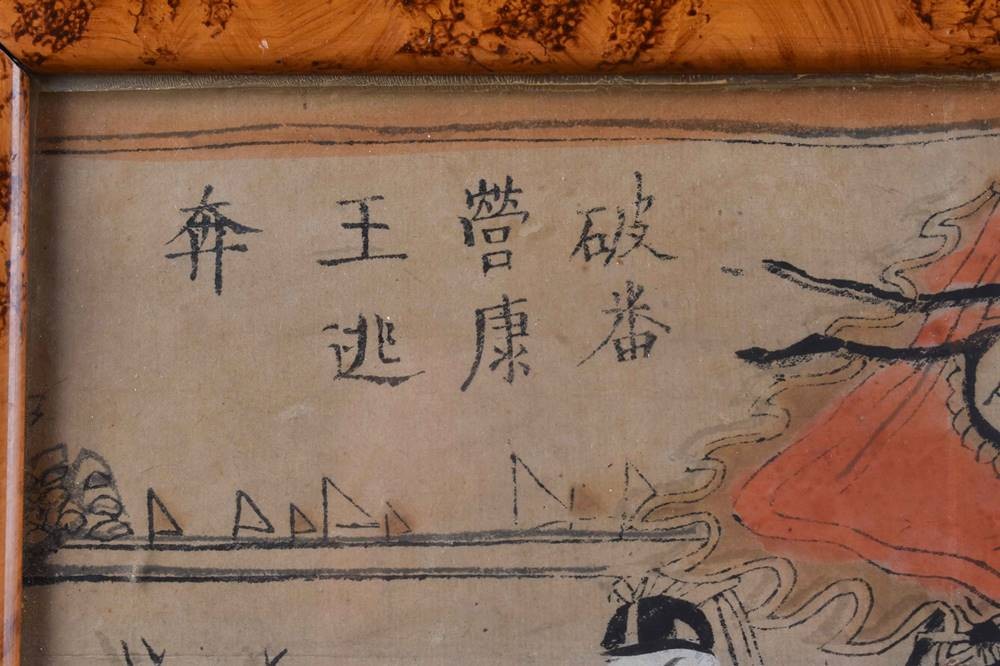 破番
營康
王逃
奔